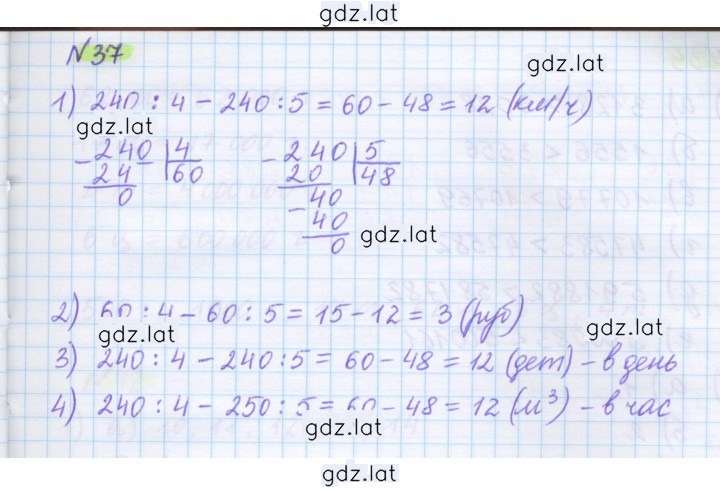 gdz.lat
N 37
gdz.lat
1) 240 : 4 - 240 : 5 = 60 - 48 = 12 (км/ч)
gdz.lat
- 240 | 4 - 240 | 5
24 | 60 20 | 48
0 - 40
40
0 gdz.lat
2) 60 : 4 - 60 : 5 = 15 - 12 = 3 (руб)
gdz.lat gdz.lat
3) 240 : 4 - 240 : 5 = 60 - 48 = 12 (дет) - в день
4) 240 : 4 - 250 : 5 = 60 - 48 = 12 (м³) - в час
gdz.lat
gdz.lat